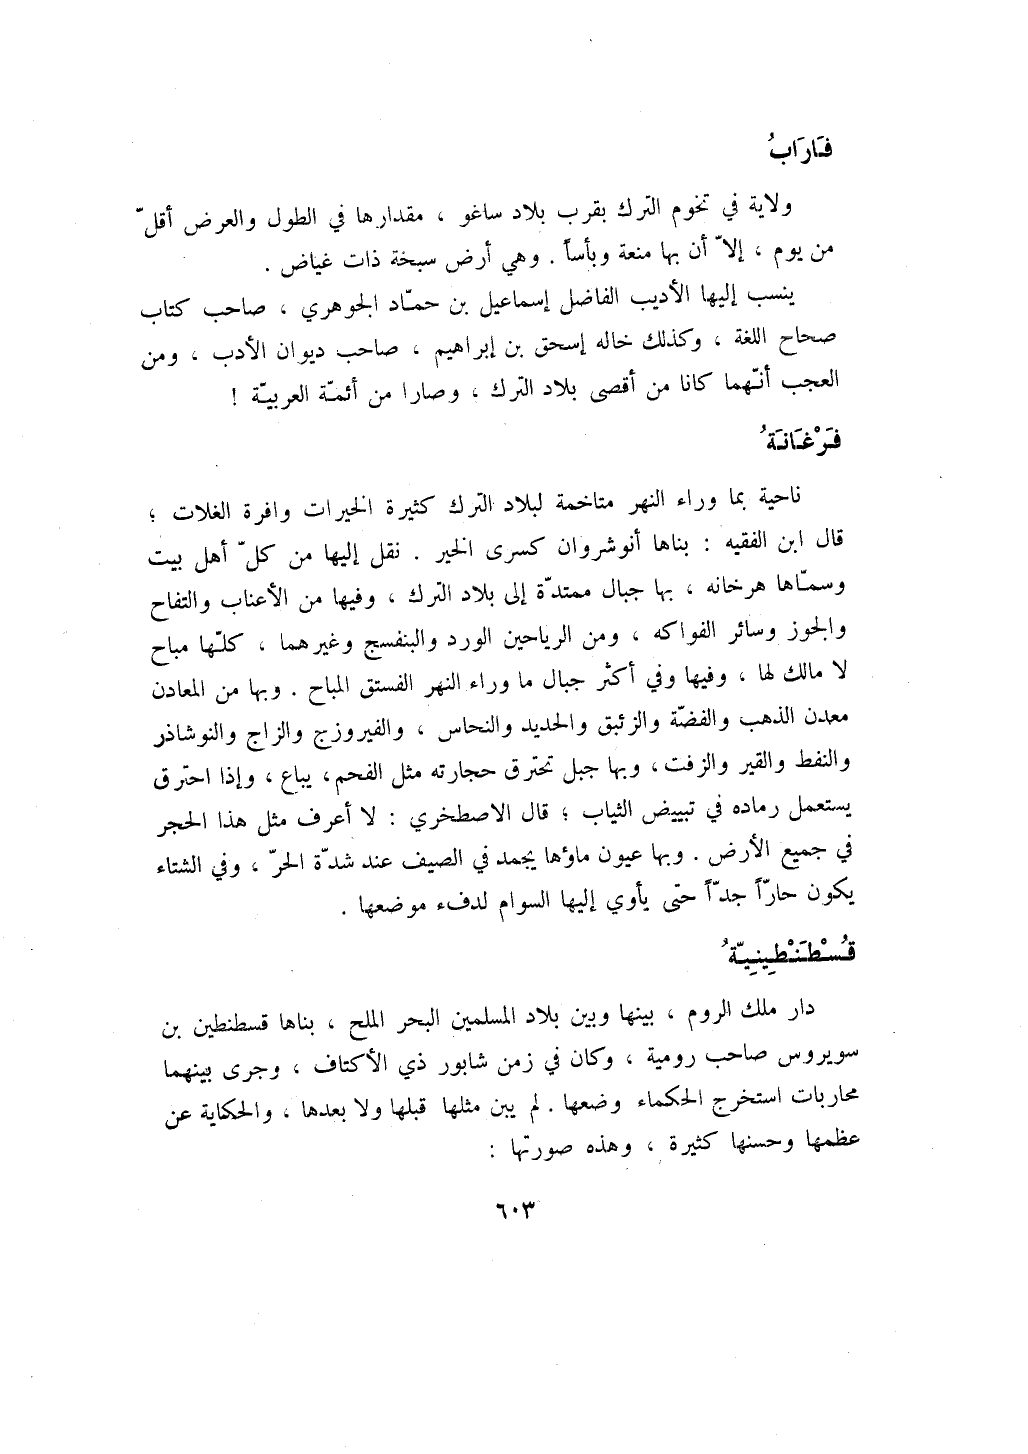 فَارَابُ
ولاية في تخوم الترك بقرب بلاد ساغو ، مقدارها في الطول والعرض أقلّ
من يوم ، إلاّ أن بها منعة وبأساً . وهي أرض سبخة ذات غياض .
ينسب إليها الأديب الفاضل إسماعيل بن حمّاد الجوهري ، صاحب كتاب
صحاح اللغة ، وكذلك خاله إسحق بن إبراهيم ، صاحب ديوان الأدب ، ومن
العجب أنّهما كانا من أقصى بلاد الترك ، وصارا من أئمّة العربيّة !
فَرْغَانَةُ
ناحية بما وراء النهر متاخمة لبلاد الترك كثيرة الخيرات وافرة الغلات ؛
قال ابن الفقيه : بناها أنوشروان كسرى الخير . نقل إليها من كلّ أهل بيت
وسمّاها هرخانه ، بها جبال ممتدّة إلى بلاد الترك ، وفيها من الأعناب والتفاح
والجوز وسائر الفواكه ، ومن الرياحين الورد والبنفسج وغيرهما ، كلّها مباح
لا مالك لها ، وفيها وفي أكثر جبال ما وراء النهر الفستق المباح . وبها من المعادن
معدن الذهب والفضّة والزئبق والحديد والنحاس ، والفيروزج والزاج والنوشاذر
والنفط والقير والزفت ، وبها جبل تحترق حجارته مثل الفحم ، يباع ، وإذا احترق
يستعمل رماده في تبييض الثياب ؛ قال الاصطخري : لا أعرف مثل هذا الحجر
في جميع الأرض . وبها عيون ماؤها يجمد في الصيف عند شدّة الحرّ ، وفي الشتاء
يكون حارّاً جدّاً حتّى يأوي إليها السوام لدفء موضعها .
قُسْطَنْطِينِيّةُ
دار ملك الروم ، بينها وبين بلاد المسلمين البحر الملح ، بناها قسطنطين بن
سويروس صاحب رومية ، وكان في زمن شابور ذي الأكتاف ، وجرى بينهما
محاربات استخرج الحكماء وضعها . لم يبن مثلها قبلها ولا بعدها ، والحكاية عن
عظمها وحسنها كثيرة ، وهذه صورتها :
٦٠٣